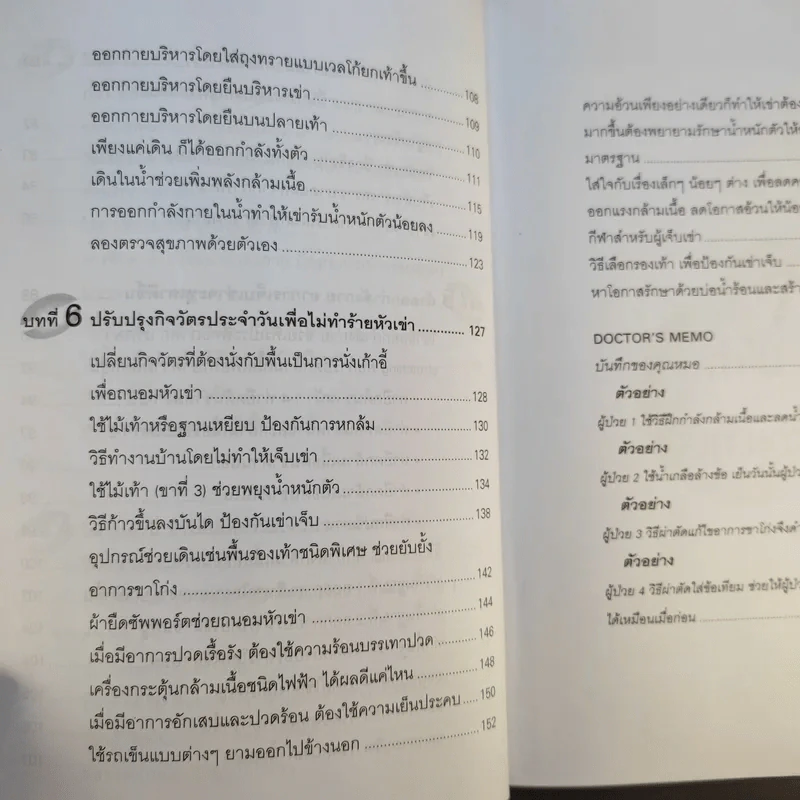 ออกกายบริหารโดยใส่ถุงทรายแบบเวลโก้ยกเท้าขึ้น 108
ออกกายบริหารโดยยืนบริหารเข่า 109
ออกกายบริหารโดยยืนบนปลายเท้า 110
เพียงแค่เดิน ก็ได้ออกกำลังทั้งตัว 111
เดินในน้ำช่วยเพิ่มพลังกล้ามเนื้อ 115
การออกกำลังกายในน้ำทำให้เข่ารับน้ำหนักตัวน้อยลง 119
ลองตรวจสุขภาพด้วยตัวเอง 123
บทที่ 6 ปรับปรุงกิจวัตรประจำวันเพื่อไม่ทำร้ายหัวเข่า 127
เปลี่ยนกิจวัตรที่ต้องนั่งกับพื้นเป็นการนั่งเก้าอี้
เพื่อถนอมหัวเข่า 128
ใช้ไม้เท้าหรือฐานเหยียบ ป้องกันการหกล้ม 130
วิธีทำงานบ้านโดยไม่ทำให้เจ็บเข่า 132
ใช้ไม้เท้า (ขาที่ 3) ช่วยพยุงน้ำหนักตัว 134
วิธีก้าวขึ้นลงบันได ป้องกันเข่าเจ็บ 138
อุปกรณ์ช่วยเดินเช่นพื้นรองเท้าชนิดพิเศษ ช่วยยับยั้ง
อาการขาโก่ง 142
ผ้ายืดซัพพอร์ตช่วยถนอมหัวเข่า 144
เมื่อมีอาการปวดเรื้อรัง ต้องใช้ความร้อนบรรเทาปวด 146
เครื่องกระตุ้นกล้ามเนื้อชนิดไฟฟ้า ได้ผลดีแค่ไหน 148
เมื่อมีอาการอักเสบและปวดร้อน ต้องใช้ความเย็นประคบ 150
ใช้รถเข็นแบบต่างๆ ยามออกไปข้างนอก 152
ความอ้วนเพียงอย่างเดียวก็ทำให้เข่าต้อง
มากขึ้นต้องพยายามรักษาน้ำหนักตัวให้
มาตรฐาน
ใส่ใจกับเรื่องเล็กๆ น้อยๆ ต่าง เพื่อลด
ออกแรงกล้ามเนื้อ ลดโอกาสอ้วนให้น้อ
กีฬาสำหรับผู้เจ็บเข่า
วิธีเลือกรองเท้า เพื่อป้องกันเข่าเจ็บ
หาโอกาสรักษาด้วยบ่อน้ำร้อนและสร้า
DOCTOR'S MEMO
บันทึกของคุณหมอ
ตัวอย่าง
ผู้ป่วย 1 ใช้วิธีฝึกกำลังกล้ามเนื้อและลดน้ำ
ตัวอย่าง
ผู้ป่วย 2 ใช้น้ำเกลือล้างข้อ เย็นวันนั้นผู้ป่ว
ตัวอย่าง
ผู้ป่วย 3 วิธีผ่าตัดแก้ไขอาการขาโก่งจึงดำ
ตัวอย่าง
ผู้ป่วย 4 วิธีผ่าตัดใส่ข้อเทียม ช่วยให้ผู้ป่ว
ได้เหมือนเมื่อก่อน